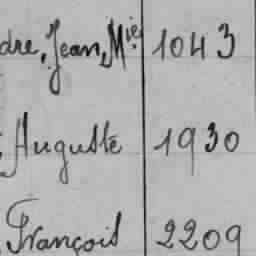 dre, Jean, Mie 1043
Auguste 1930
François 2209